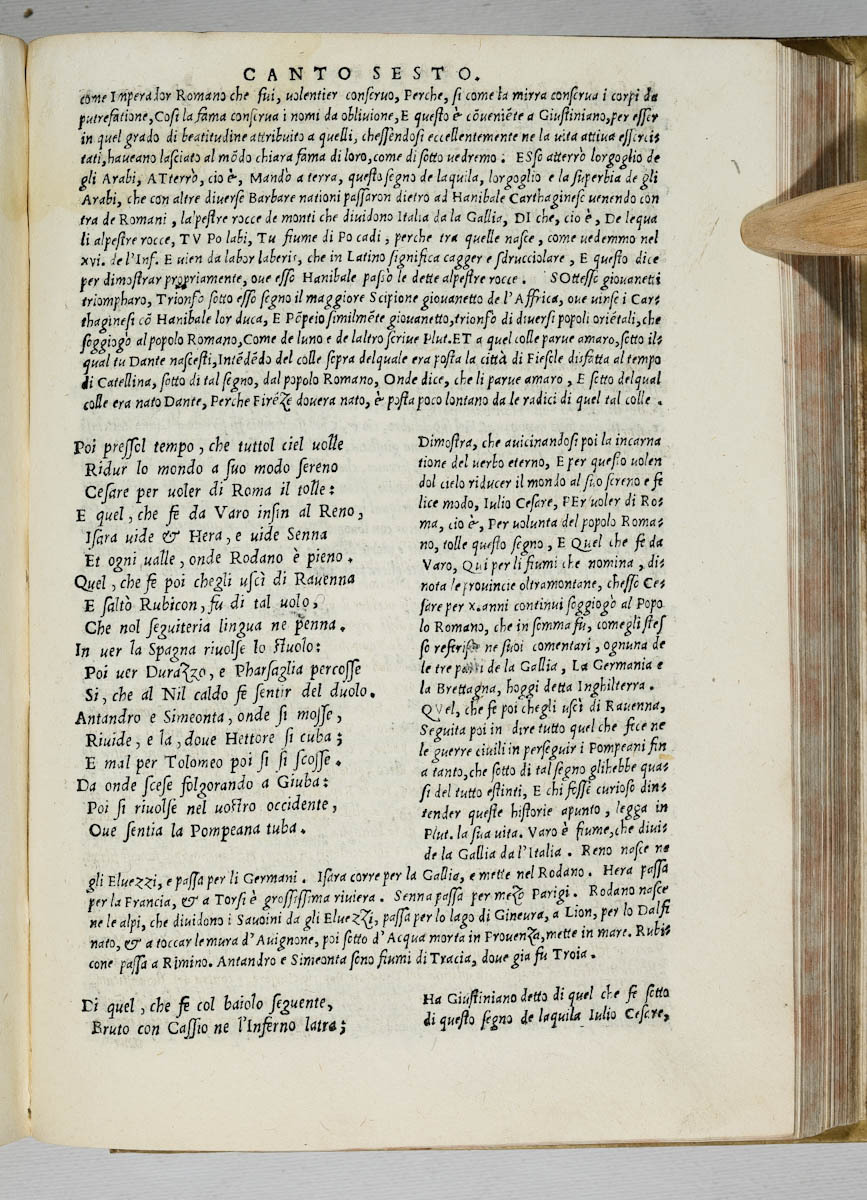 CANTO SESTO.
come Imperador Romano che fui, uolentier conseruo, Perche, si come la mirra conserua i corpi da
putrefatione, Cosi la fama conserua i nomi da obliuione, E questo è cõueniẽte a Giustiniano, per esser
in quel grado di beatitudine attribuito a quelli, chessendosi eccellentemente ne la uita attiua essercis
tati, haueano lasciato al mõdo chiara fama di loro, come di sotto uedremo. ESso atterrò lorgoglio de
gli Arabi, ATterrò, cio è, Mandò a terra, questo segno de laquila, lorgoglio e la superbia de gli
Arabi, che con altre diuerse Barbare nationi passaron dietro ad Hanibale Carthaginese uenendo con
tra de Romani, lalpestre rocce de monti che diuidono Italia da la Gallia, DI che, cio è, De lequa
li alpestre rocce, TV Po labi, Tu fiume di Po cadi, perche tra quelle nasce, come uedemmo nel
xvi. de l'Inf. E uien da labor laberis, che in Latino significa cagger e sdrucciolare, E questo dice
per dimostrar propriamente, oue esso Hanibale passò le dette alpestre rocce. SOttesso giouanetti
triompharo, Trionfò sotto esso segno il maggiore Scipione giouanetto de l'Affrica, oue uinse i Cars
thaginesi cõ Hanibale lor duca, E Põpeio similmẽte giouanetto, trionfò di diuersi popoli oriẽtali, che
soggiogò al popolo Romano, Come de luno e de laltro scriue Plut. ET a quel colle parue amaro, sotto ils
qual tu Dante nascesti, Intẽdẽdo del colle sopra delquale era posta la città di Fiesole disfatta al tempo
di Catellina, sotto di tal segno, dal popolo Romano, Onde dice, che li parue amaro, E sotto delqual
colle era nato Dante, Perche Firẽze douera nato, è posta poco lontano da le radici di quel tal colle.
Poi pressol tempo, che tuttol ciel uolle
Ridur lo mondo a suo modo sereno
Cesare per uoler di Roma il tolle:
E quel, che fe da Varo insin al Reno,
Isara uide & Hera, e uide Senna
Et ogni ualle, onde Rodano è pieno.
Quel, che fe poi chegli uscì di Rauenna
E saltò Rubicon, fu di tal uolo,
Che nol seguiteria lingua ne penna.
In uer la Spagna riuolse lo stuolo:
Poi uer Durazzo, e Pharsaglia percosse
Si, che al Nil caldo fe sentir del duolo.
Antandro e Simeonta, onde si mosse,
Riuide, e la, doue Hettore si cuba;
E mal per Tolomeo poi si si scosse.
Da onde scese folgorando a Giuba:
Poi si riuolse nel uostro occidente,
Oue sentia la Pompeana tuba.
Dimostra, che auicinandosi poi la incarna
tione del uerbo eterno, E per questo uolen
dol cielo riducer il mondo al suo sereno e fe
lice modo, Iulio Cesare, PEr uoler di Ros
ma, cio è, Per uolunta del popolo Romas
no, tolle questo segno, E QVel che fe da
Varo, Qui per li fiumi che nomina, dis
nota le prouincie oltramontane, chesso Ces
sare per x. anni continui soggiogò al Popo
lo Romano, che in somma fu, comegli stes
so referisce ne suoi comentari, ognuna de
le tre parti de la Gallia, La Germania e
la Brettagna, hoggi detta Inghilterra.
QVel, che fe poi chegli uscì di Rauenna,
Seguita poi in dire tutto quel che fece ne
le guerre ciuili in perseguir i Pompeani fin
a tanto, che sotto di tal segno glihebbe quas
si del tutto estinti, E chi fosse curioso dins
tender queste historie apunto, legga in
Plut. la sua uita. Varo è fiume, che diuis
de la Gallia da l'Italia. Reno nasce ne
gli Eluezzi, e passa per li Germani. Isara corre per la Gallia, e mette nel Rodano. Hera passa
per la Francia, & a Torsi è grossissima riuiera. Senna passa per mezo Parigi. Rodano nasce
ne le alpi, che diuidono i Sauoini da gli Eluezzi, passa per lo lago di Gineura, a Lion, per lo Dalfi
nato, & a toccar le mura d'Auignone, poi sotto d'Acqua morta in Prouenza, mette in mare. Rubis
cone passa a Rimino. Antandro e Simeonta sono fiumi di Tracia, doue gia fu Troia.
Di quel, che fe col baiolo seguente,
Bruto con Cassio ne l'Inferno latra;
Ha Giustiniano detto di quel che fe sotto
di questo segno de laquila Iulio Cesare,